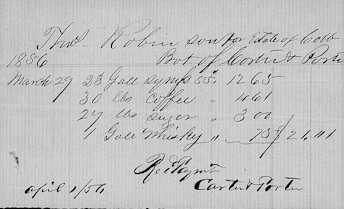 Thos Robinson for Estate of Cobb
1856 Bot of Carter & Porter
March 29 23 Galls Syrup 55" 12 65
30 lbs Coffee " 4 61
27 lbs Sugar " 3 00
1 Gall Whiskey " 75 / 21,01
Rec Paymt
April 1/56 Carter & Porter